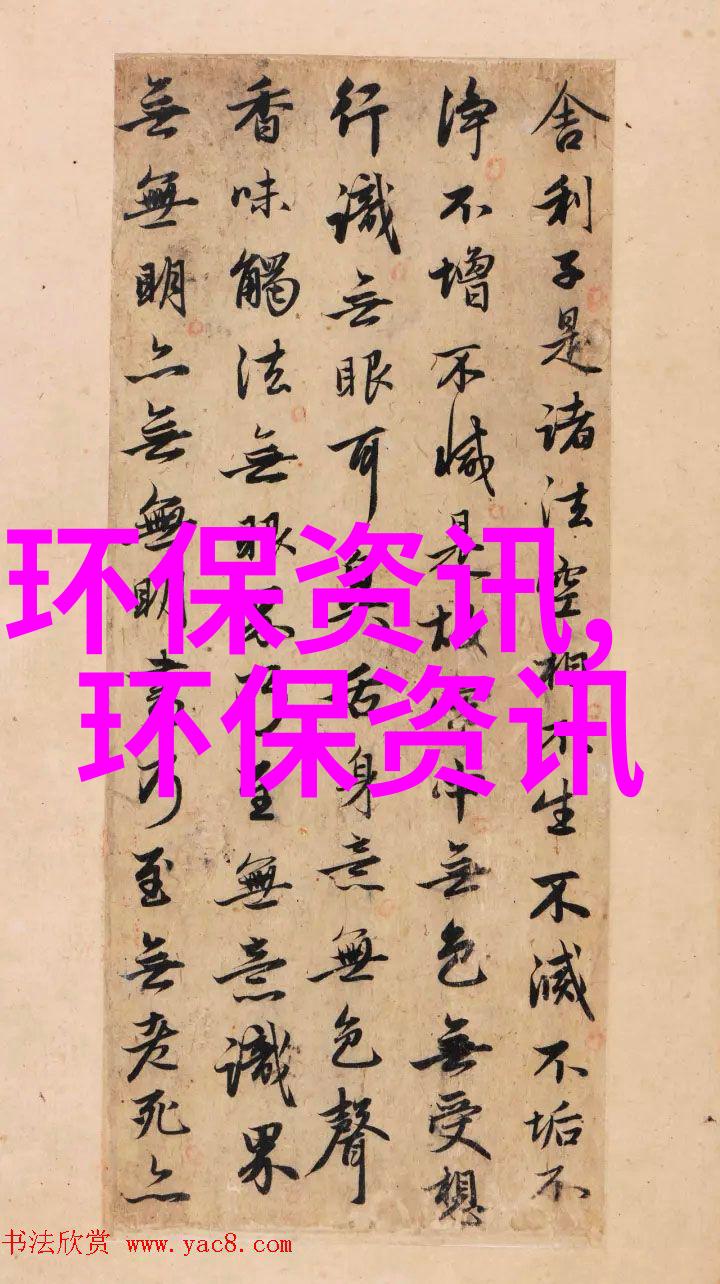 舍利子是諸法空相不生不滅不垢不
淨不增不減是故空中無色無受想
行識無眼耳鼻舌身意無色聲
香味觸法無眼界乃至無意識界
無無明亦無無明盡乃至無老死亦
环保资讯,
环保资讯
书法欣赏 www.yac8.com